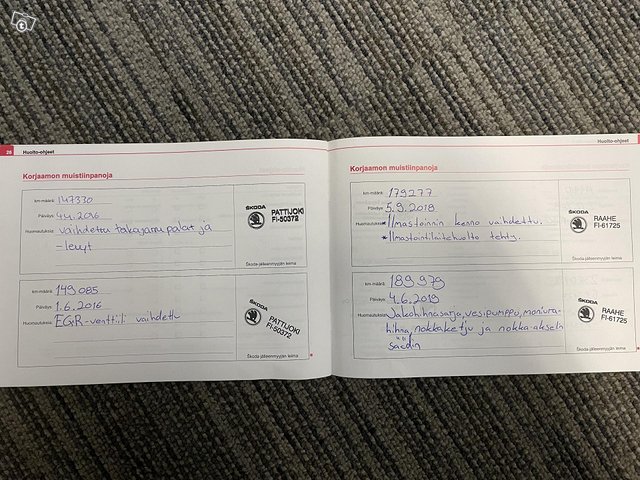 28 Huolto-ohjeet
Korjaamon muistiinpanoja
km-määrä: 147330
Päiväys: 4.4.2016
Huomautuksia: vaihdettu takajarrupalat ja
-levyt
ŠKODA
PATTIJOKI
FI-50372
Škoda-jälleenmyyjän leima
km-määrä: 149085
Päiväys: 1.6.2016
Huomautuksia: EGR-venttiili vaihdettu
ŠKODA
PATTIJOKI
FI-50372
Škoda-jälleenmyyjän leima
Huolto-ohjeet
Korjaamon muistiinpanoja
km-määrä: 179277
Päiväys: 5.9.2018
Huomautuksia: *Ilmastoinnin kenno vaihdettu.
*Ilmastointilaitehuolto tehty.
ŠKODA
RAAHE
FI-61725
Škoda-jälleenmyyjän leima
km-määrä: 189979
Päiväys: 4.6.2019
Huomautuksia: Jakohihnasarja, vesipumppu, moniura-
hihna, nokkaketju ja nokka-akselin
säädin
ŠKODA
RAAHE
FI-61725
Škoda-jälleenmyyjän leima